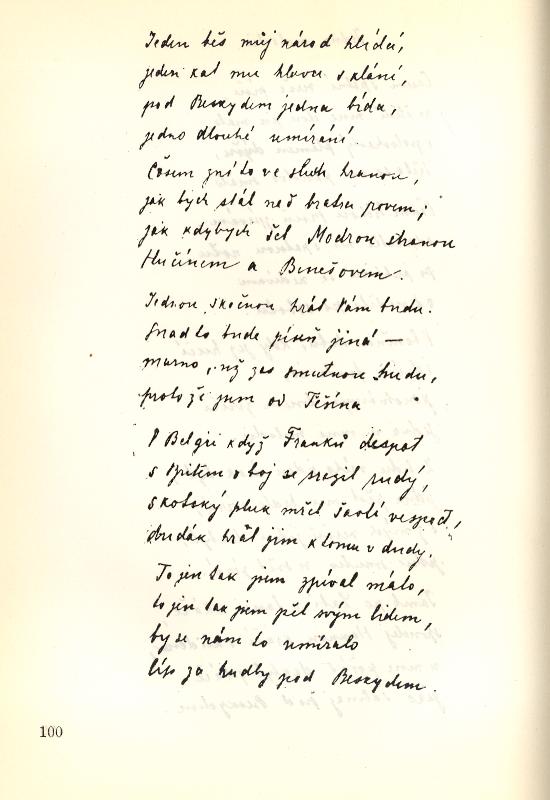 Jeden běs můj národ hlídá,
jeden kat mu hlavu sklání,
pod Beskydem jedna bída,
jedno dlouhé umírání.
Časem zní to ve sluch hranou,
jak bych stál než bratru povem;
jak kdybych šel Modrou stranou
Hlučínem a Benešovem.
Jednou skočnou hrát Vám budu.
Snad to bude píseň jiná —
marno, už zas smutnou hudu,
protože jsem od Těšína
V Belgii když Franků despot
s Britem v boj se srazil rudý,
skotský pluk mřel
dudák hrál jim k tomu v dudy.
To jen tak jsem zpíval málo,
to jen tak jsem pěl svým lidem,
by se nám to umíralo
líp za hudby pod Beskydem.
100